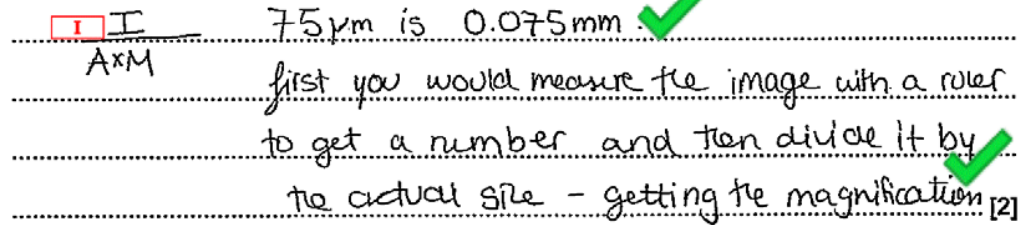 I I 75μm is 0.075mm.
A×M
first you would measure the image with a ruler
to get a number and then divide it by
the actual size - getting the magnification [2]